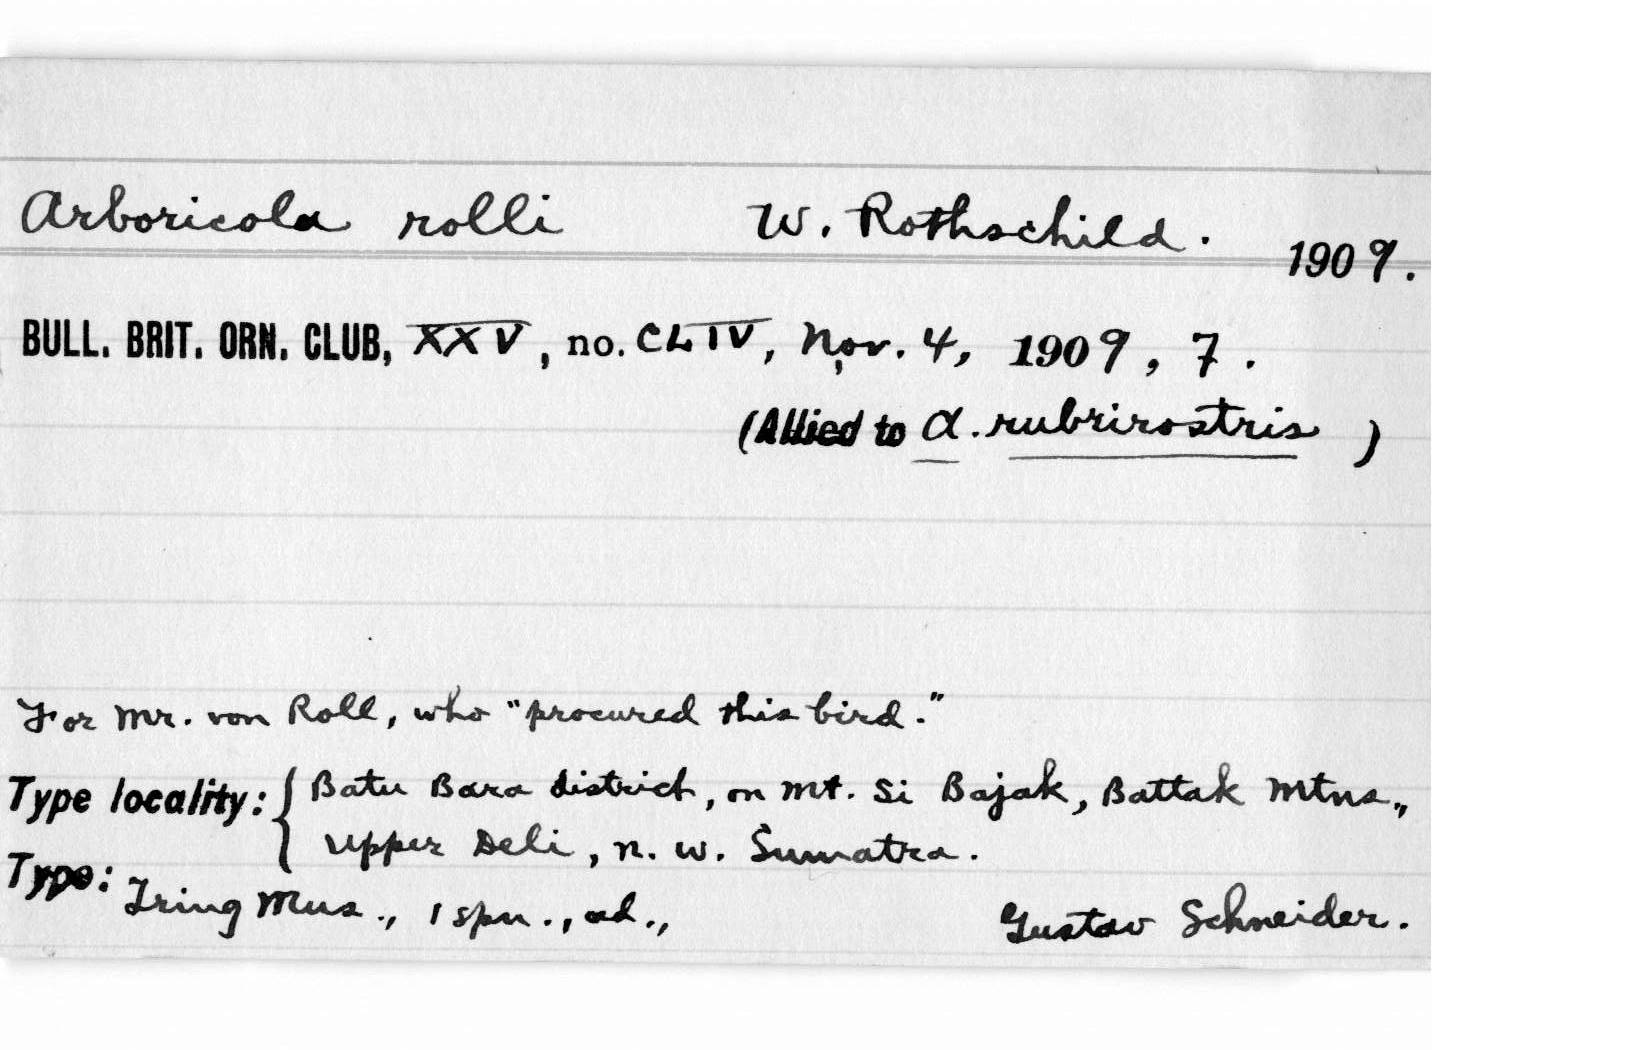 Arboricola rolli W. Rothschild. 1909.
BULL. BRIT. ORN. CLUB, XXV, no. CLIV, Nov. 4, 1909, 7.
(Allied to A. rubrirostris )
For Mr. von Roll, who "procured this bird."
Type locality: { Batu Bara district, on Mt. Si Bajak, Battak Mtns.,
Upper Deli, n. w. Sumatra.
Type: Tring Mus., 1 spn., ad., Gustav Schneider.